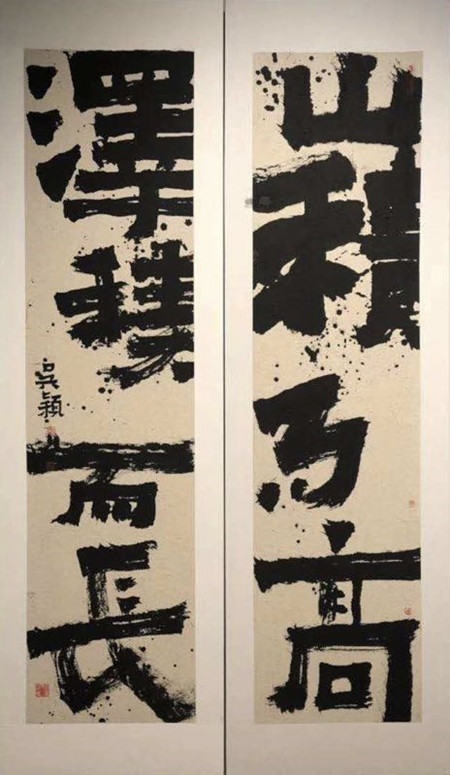 山積乃高
澤積而長
吳穎